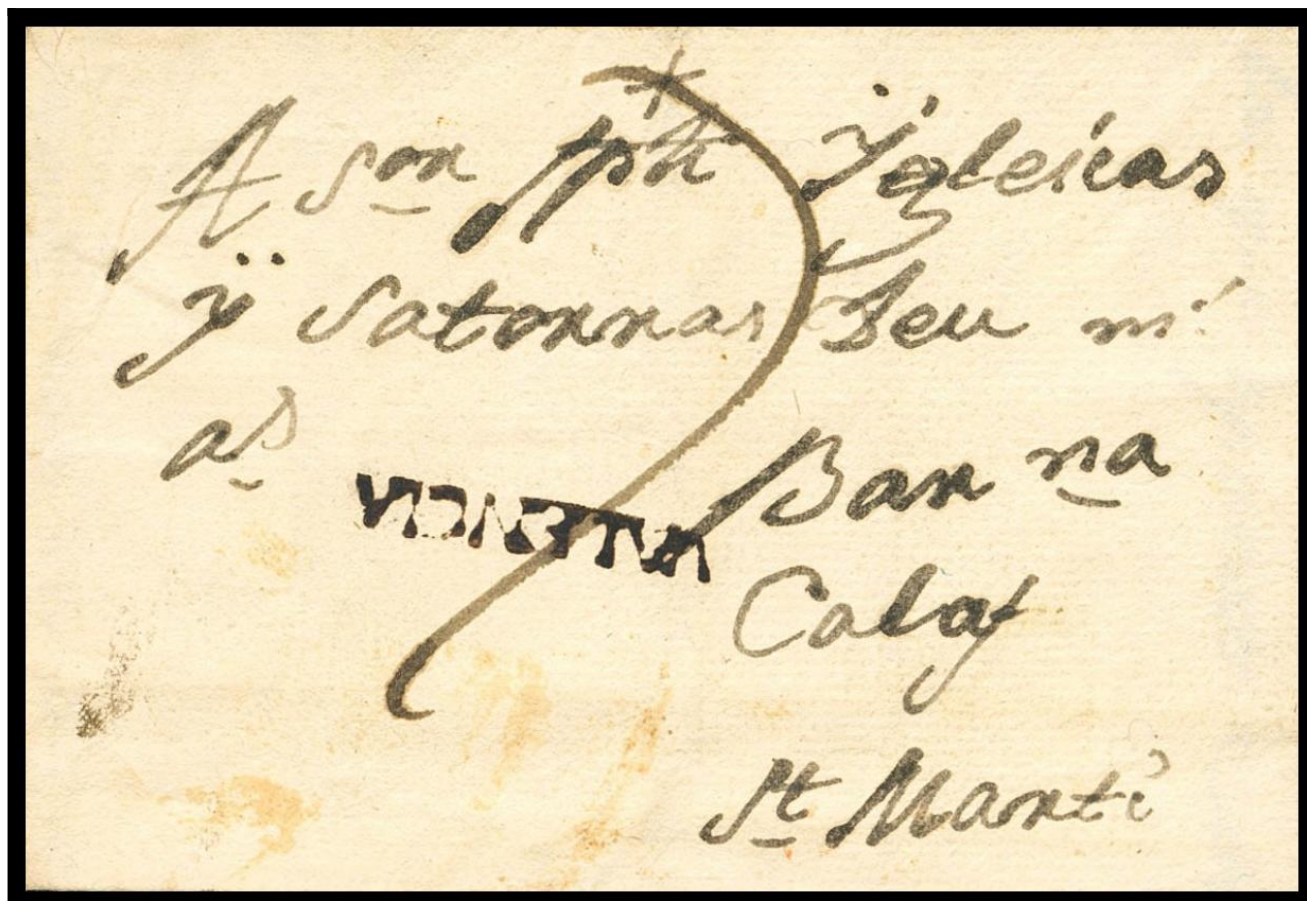 A Sor Jph Yglesias
ÿ Satorras Deu m
as
Barna
Calaf
St Marti